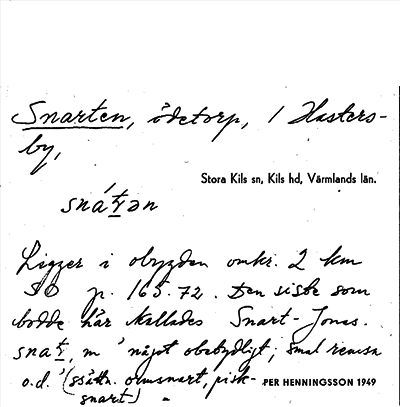 Snarten, ödetorp, i Hasters-
by,
Stora Kils sn, Kils hd, Värmlands län.
Ligger i obygden omkr. 2 km
SO p. 165.72. Den siste som
bodde här kallades Snart-Jonas.
m 'något obetydligt; smal remsa
o.d.' (ssättn. ormsnart, pisk-
PER HENNINGSSON 1949
snart)